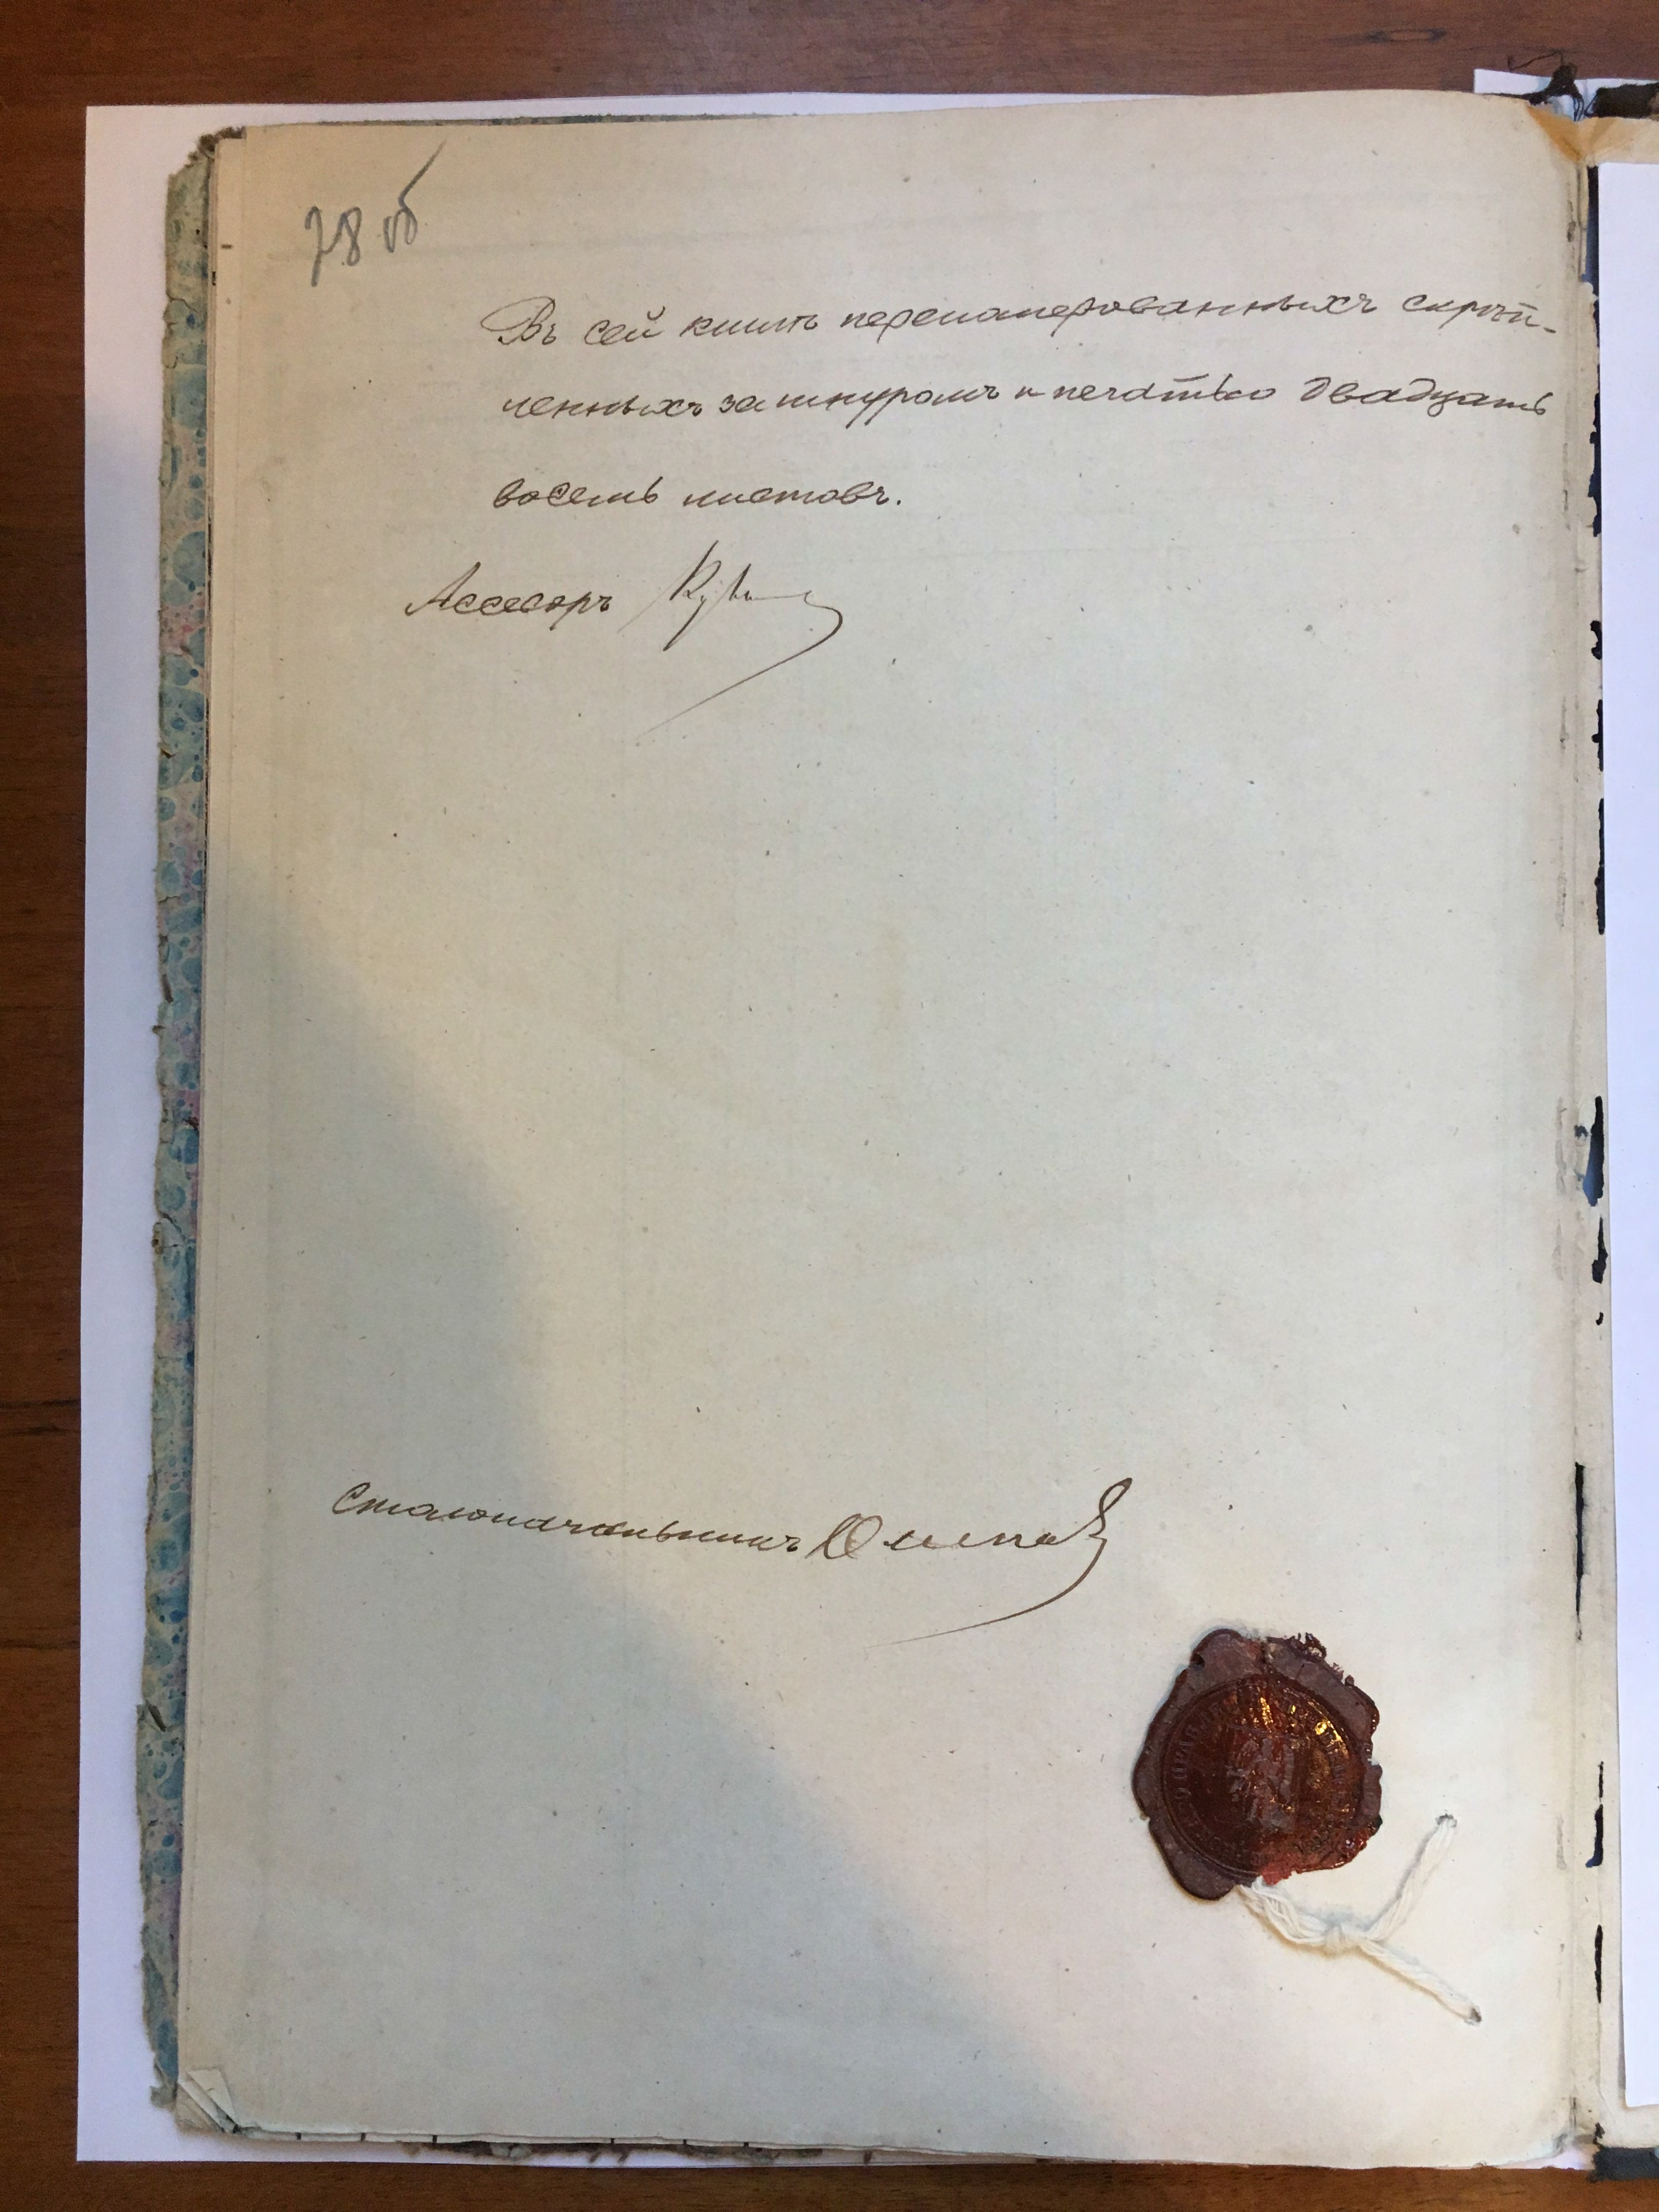 28 об
Въ сей книгѣ перенумерованныхъ скрѣп-
ленныхъ за шнуромъ и печатью двадцать
восемь листовъ.
Ассесоръ
Столоначальникъ